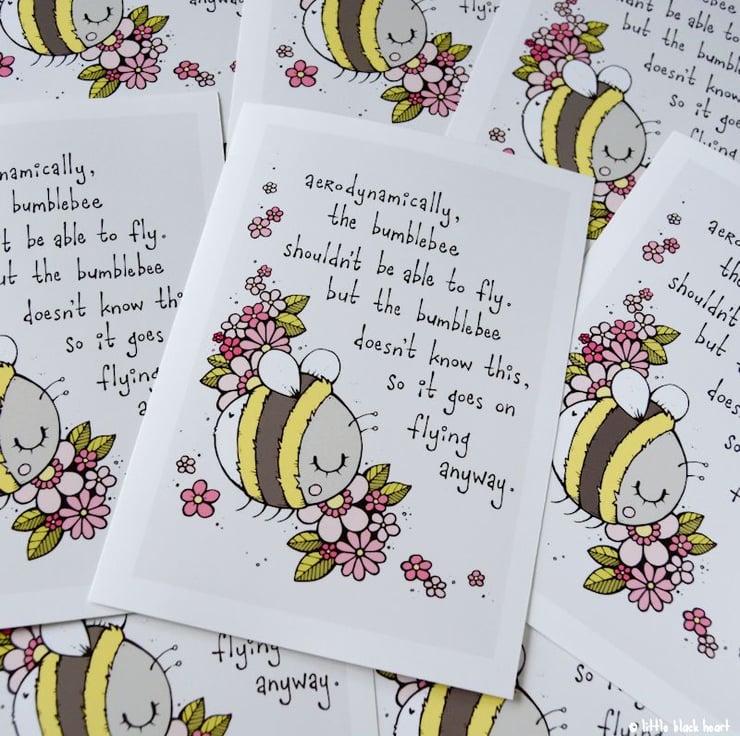 anyway.
flyin
ebee
ant be able to
but the bumbl
doesn't know
so it goe
flying
namically,
bumblebee
t be able to fly.
ut the bumblebee
doesn't know th
so it goes
flying
a
aerodynamically,
the bumblebee
shouldn't be able to fly.
but the bumblebee
doesn't know this,
so it goes on
flying
anyway.
aero
the
shouldn't
but t
does
so
flying
anyway.
so
flyi
© little black heart